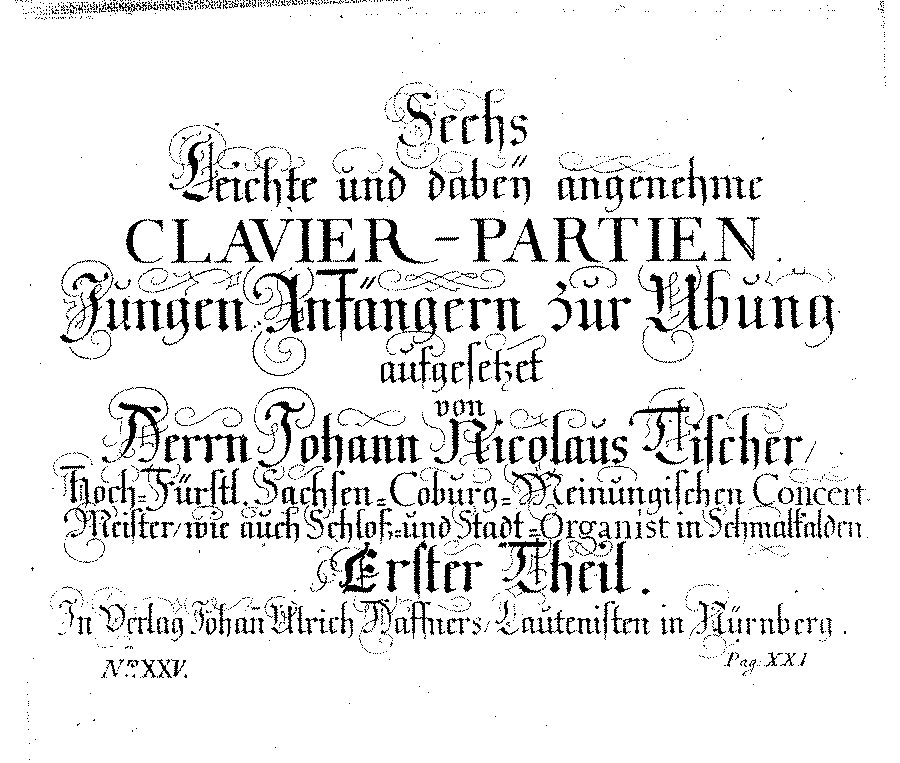 Sechs
Leichte und dabeÿ angenehme
CLAVIER-PARTIEN.
Jungen Anfängern zur Ubung
aufgesetzet
von
Herrn Johann Nicolaus Tischer/
Hoch-Fürstl. Sachsen-Coburg-Meinungischen Concert
Meister/wie auch Schloß-und Stadt-Organist in Schmalkalden
Erster Theil.
In Verlag Johañ Ulrich Haffners/Lautenisten in Nürnberg.
Nro. XXV.
Pag. XXI